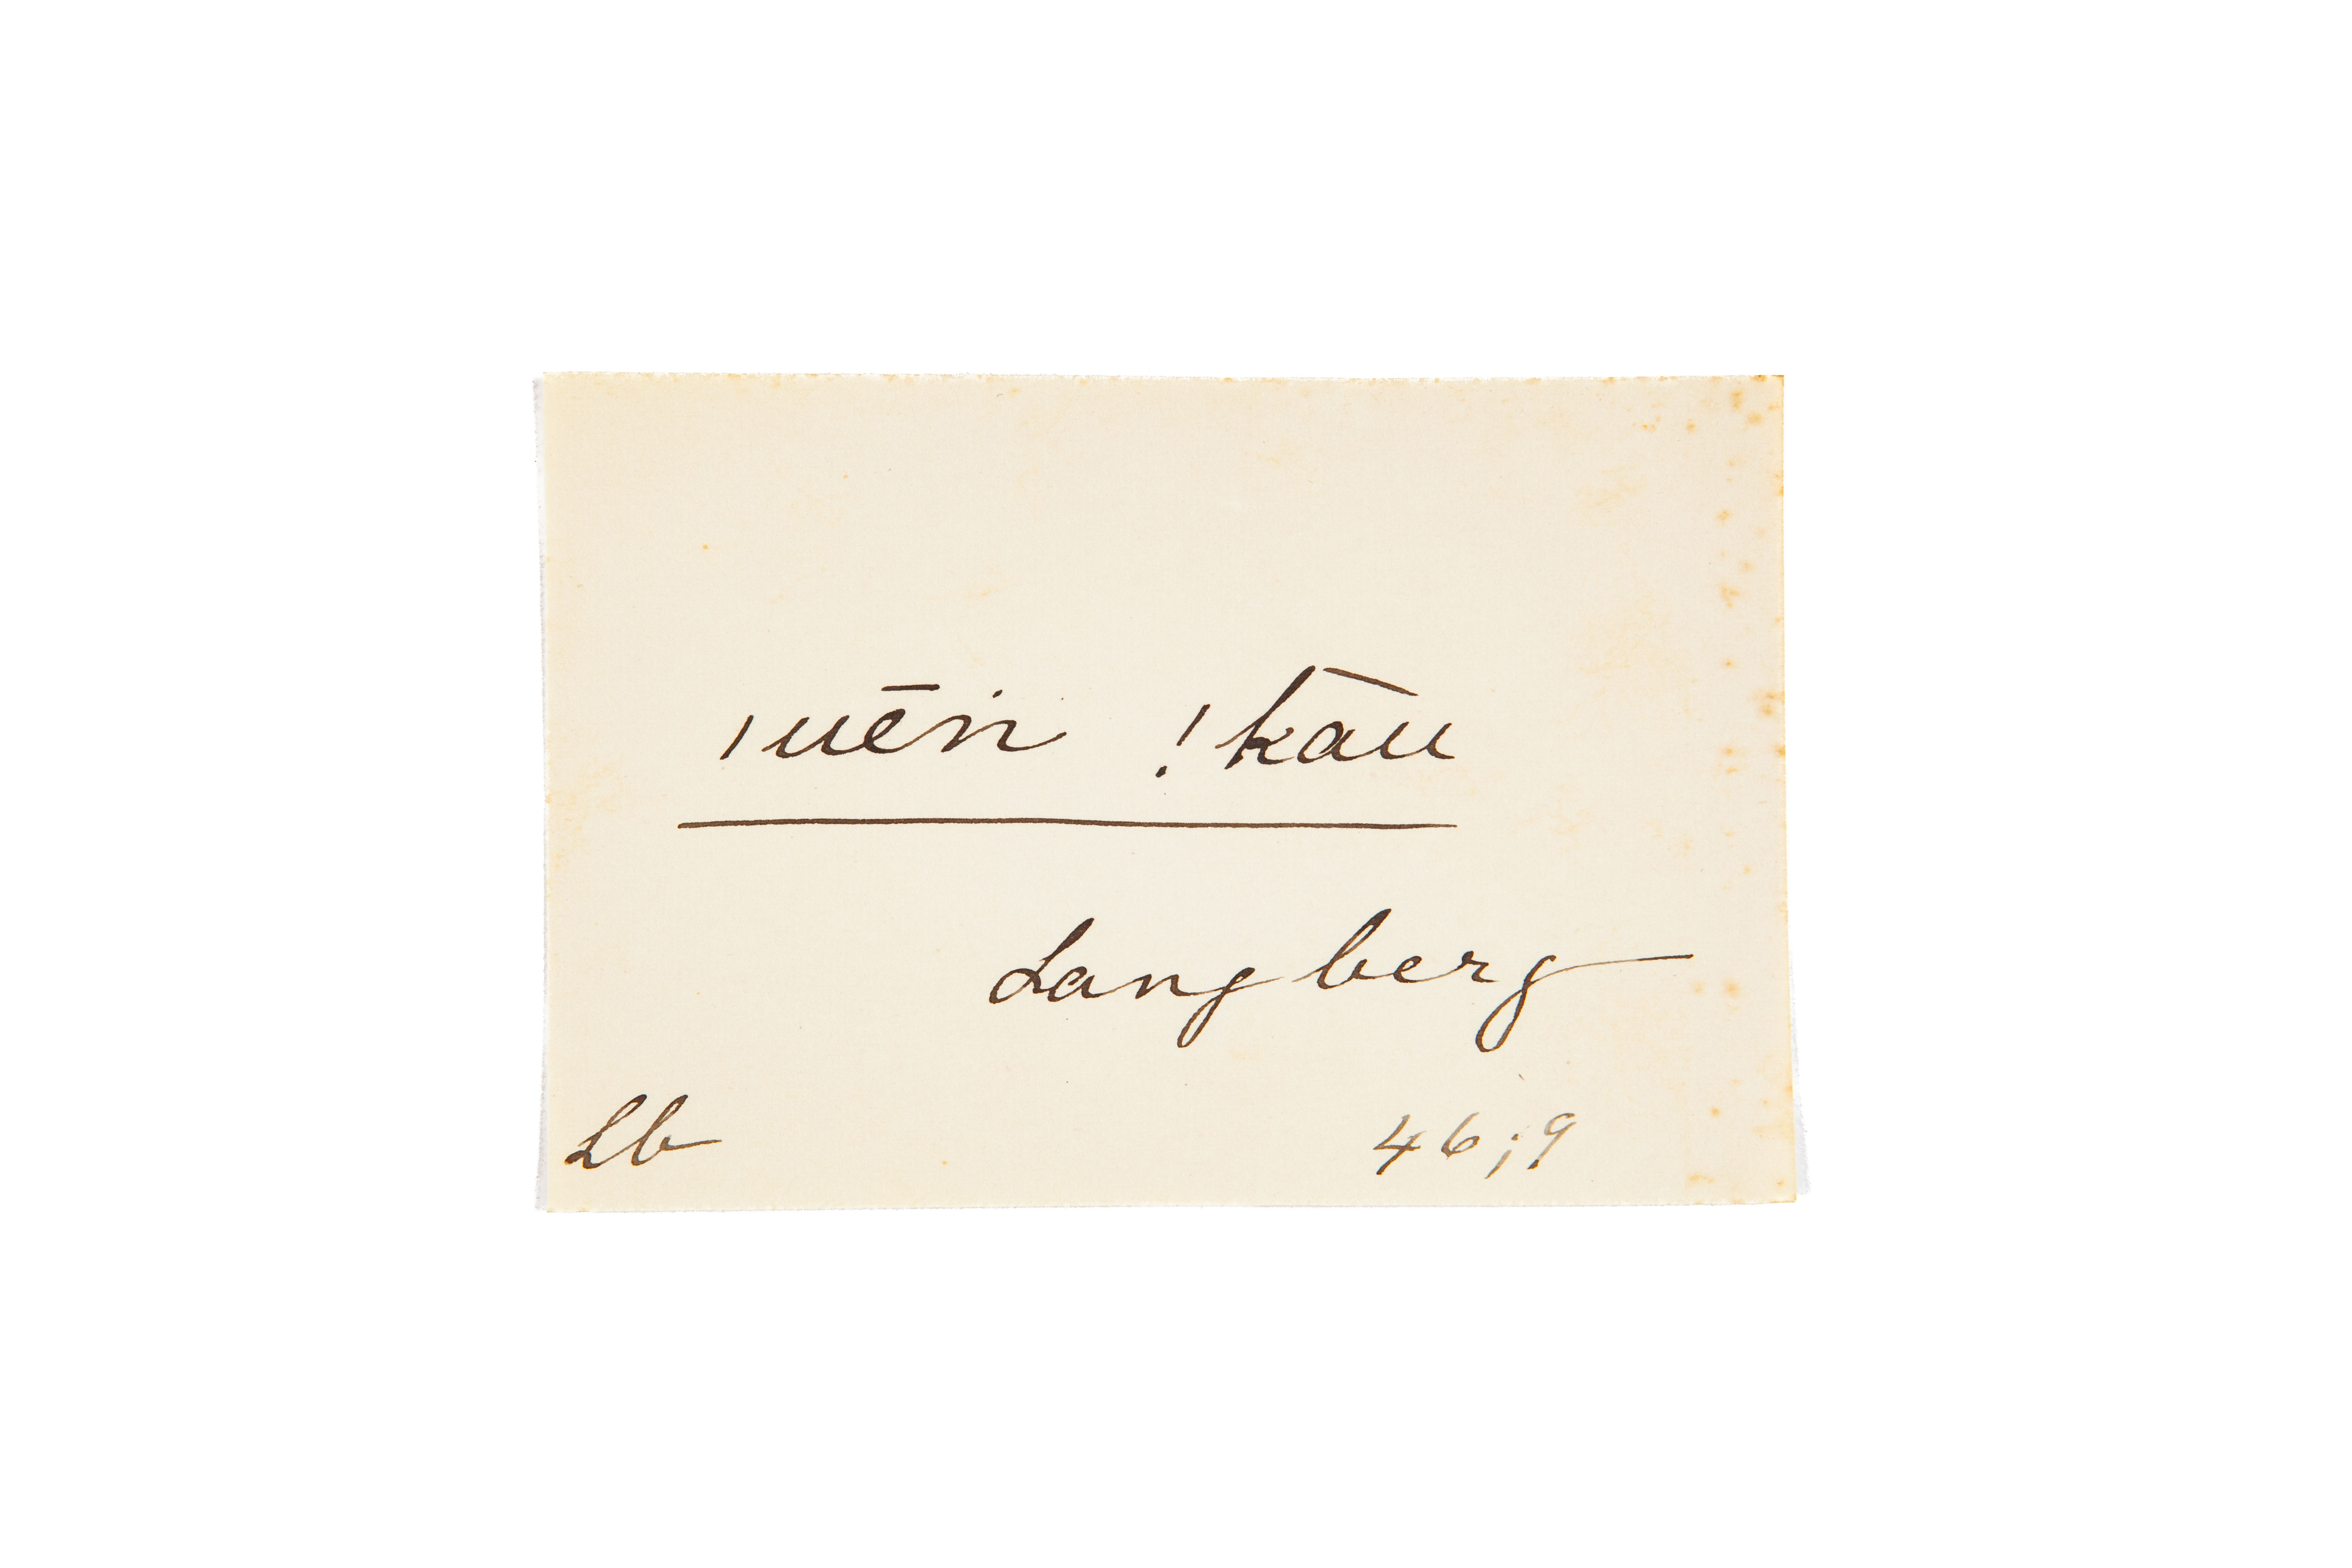 ı uēṅ !kāu
Langberg
Lb 46;9